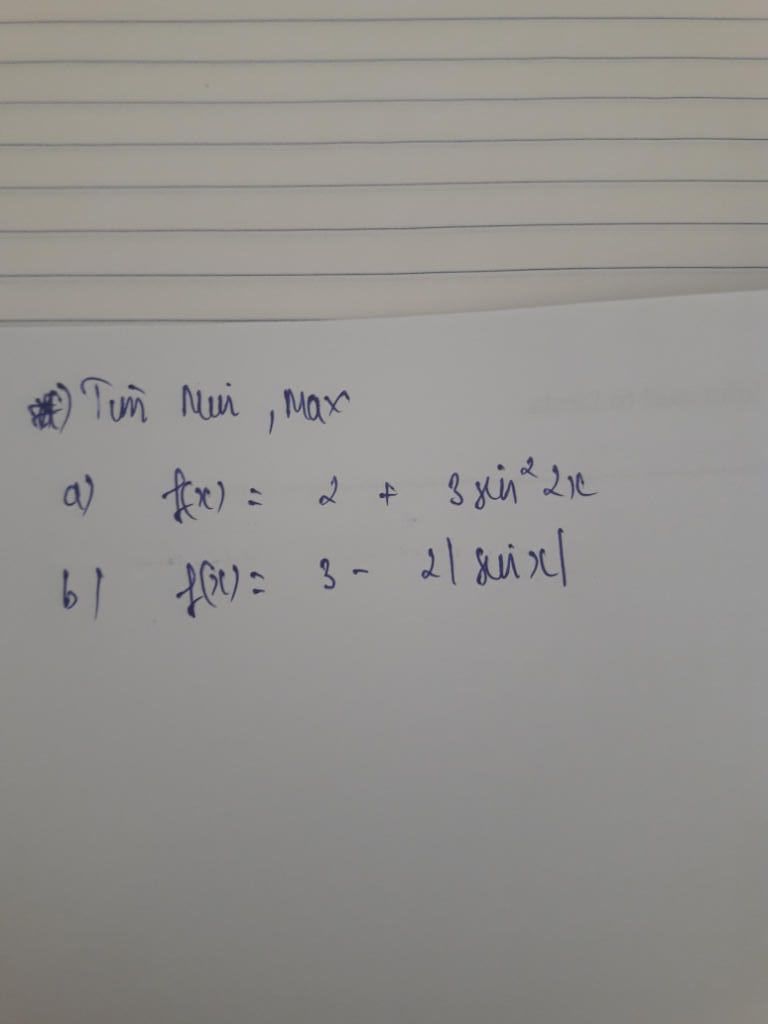 *) Tìm Min, Max
a) f(x) = 2 + 3 sin² 2x
b) f(x) = 3 - 2|sin x|